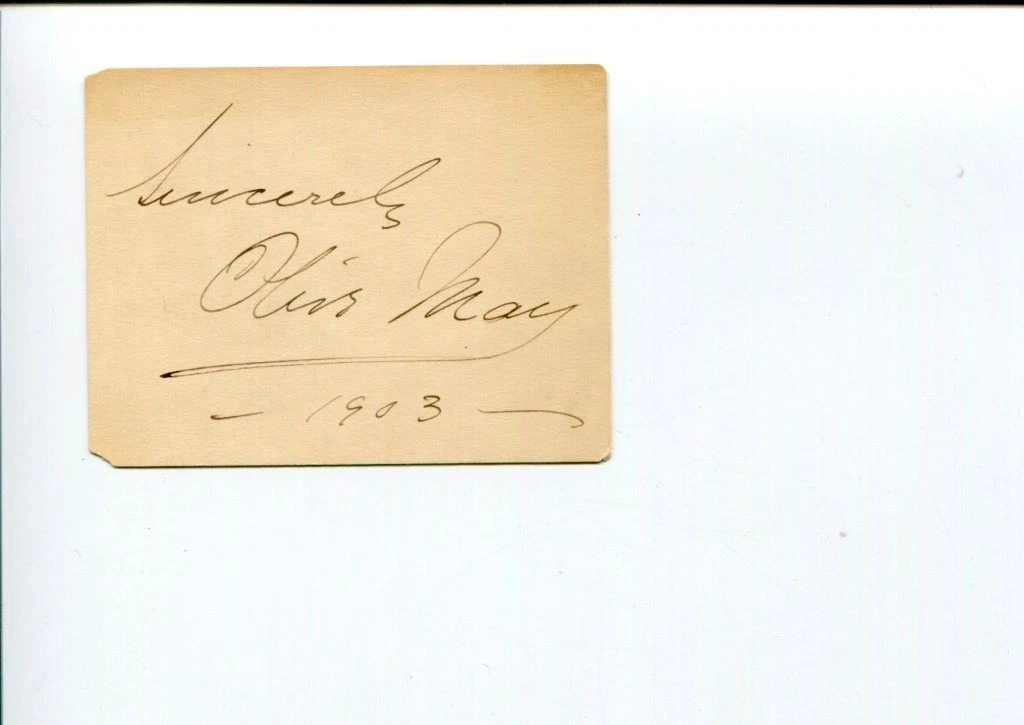 Sincerely
Olive May
- 1903 -